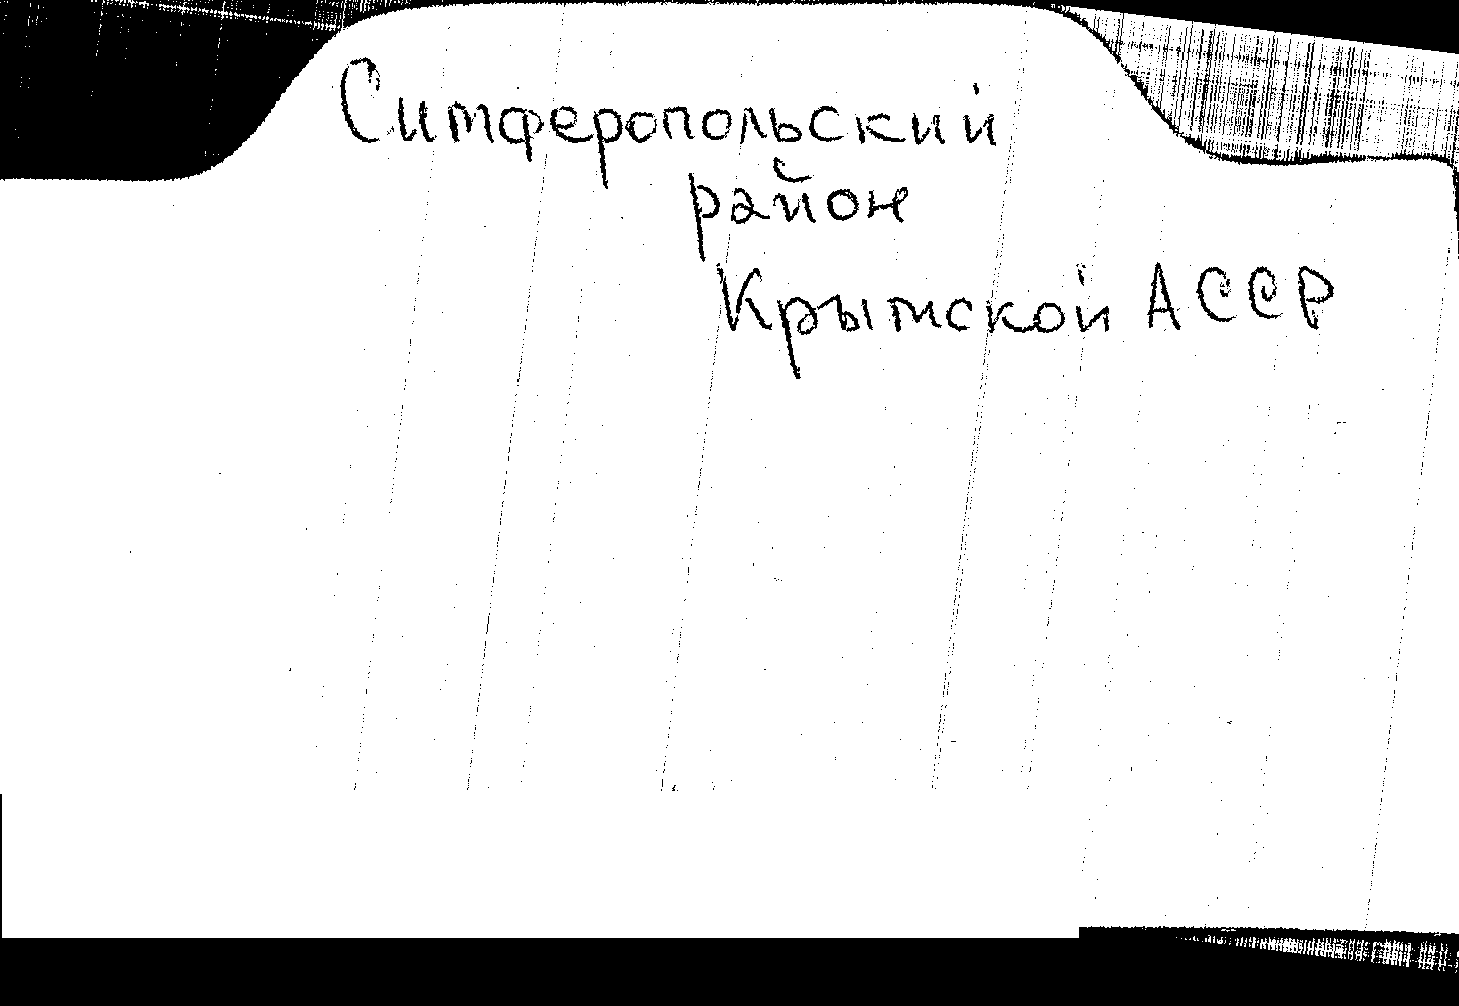 Симферопольский
район
Крымской АССР